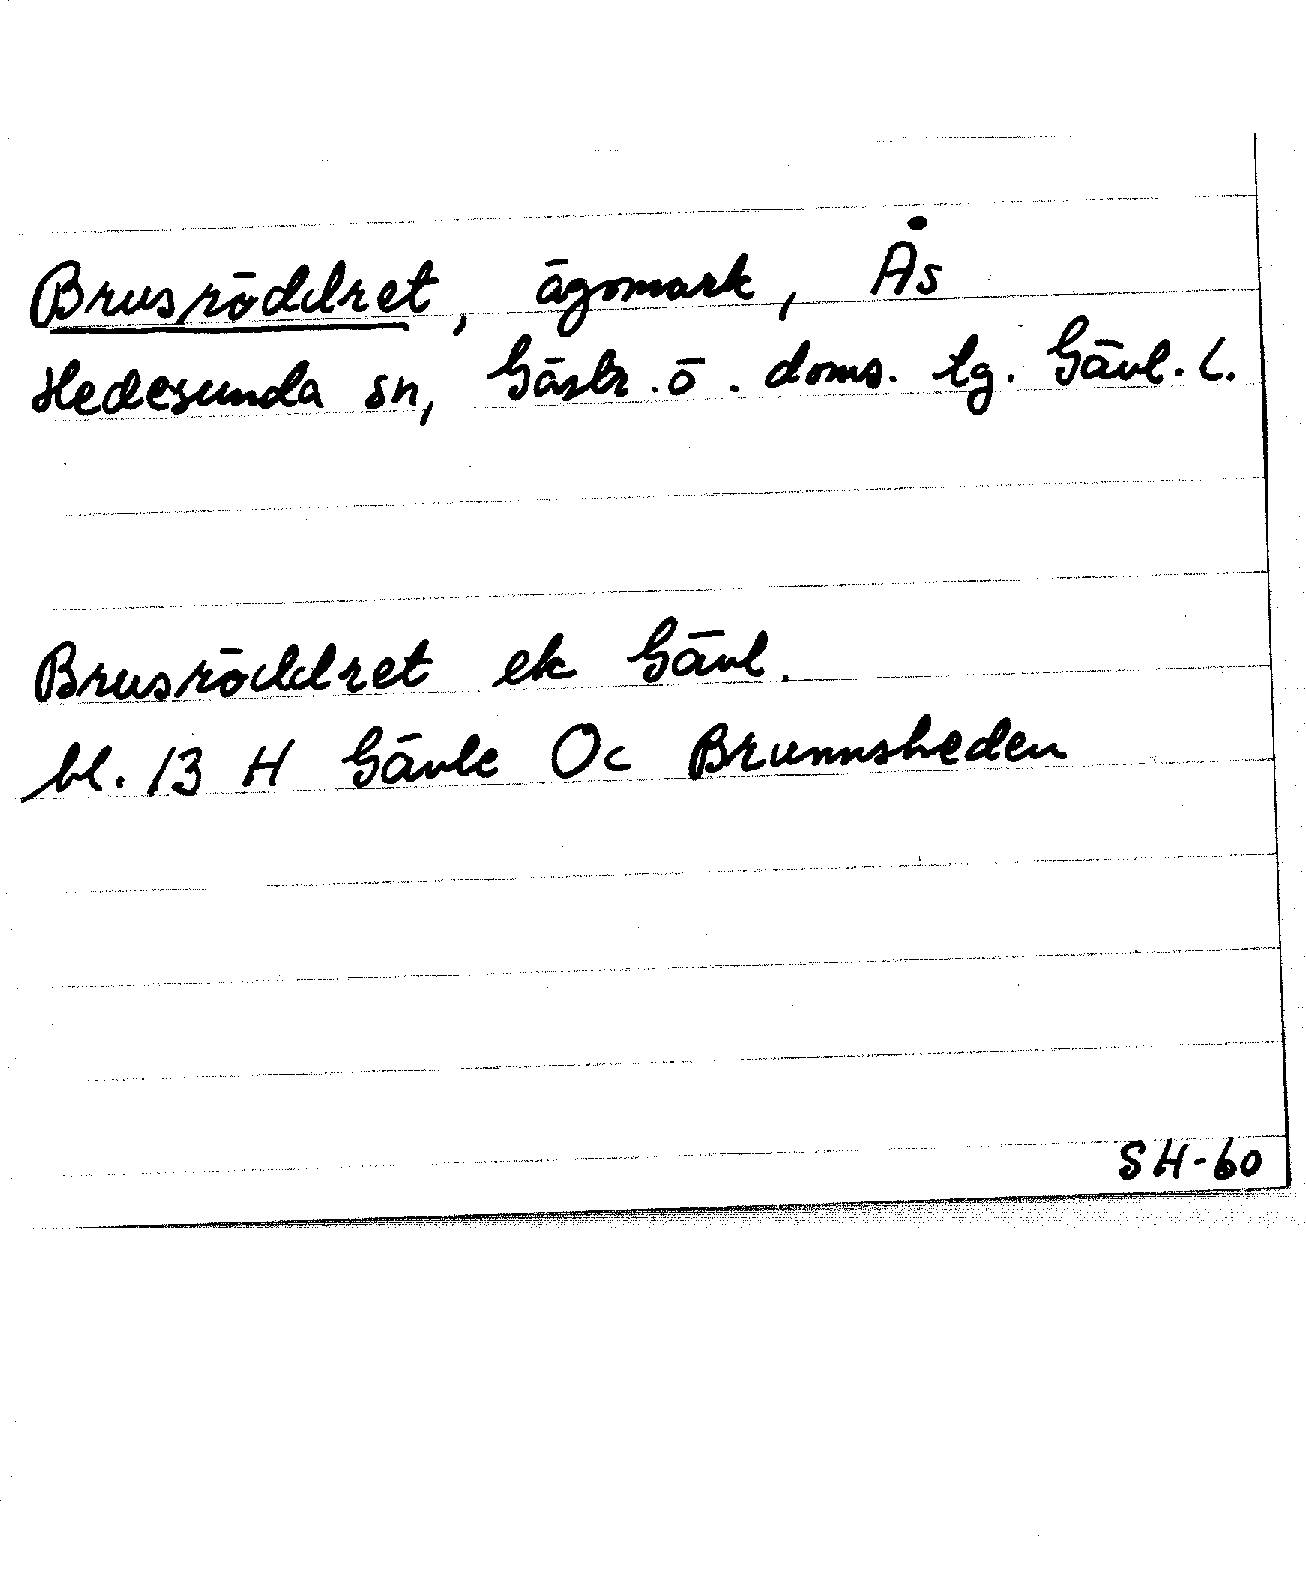 Brusröddret, ägomark, Ås
Hedesunda sn, Gästr. ö. doms. tg. Gävl. l.
Brusröddret ek Gävl.
bl. 13 H Gävle Oc Brunnsheden
SH-60